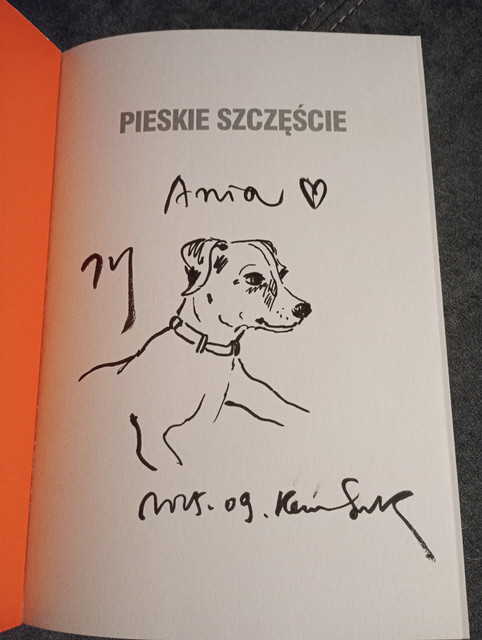 PIESKIE SZCZĘŚCIE
Ania ♡
2025.09.